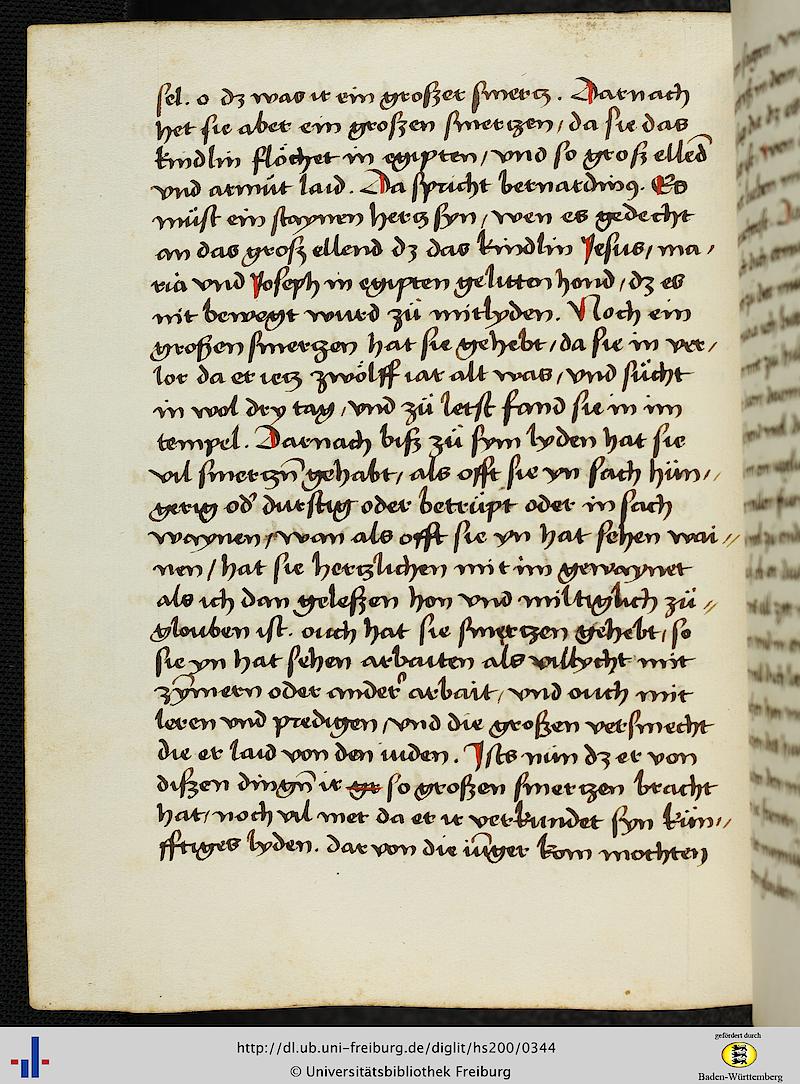 sel. o dz was ir ein großer smercz. Darnach
het sie aber ein großen smerczen / da sie das
kindlin flöchet in egipten / vnd so groß ellend
vnd armůt laid. Da spricht bernardinꝰ. Es
müst ein staynen hercz syn / wen es gedecht
an das groß ellend dz das kindlin Jesus / ma /
ria vnd Joseph in egipten gelitten hond / dz es
nit bewegt wurd zů mitlyden. Noch ein
großen smerczen hat sie gehebt / da sie in ver /
lor da er iecz zwölff iar alt was / vnd sücht
in wol dry tag / vnd zů letst fand sie in im
tempel. Darnach biß zů sym lyden hat sie
vil smerczn̄ gehabt / als offt sie yn sach hün //
gerig od͛ durstig oder betrüpt oder in sach
waynen / wan als offt sie yn hat sehen wai //
nen / hat sie herczlichen mit im gewaynet
als ich dan geleßen hon vnd miltiglich zů //
glouben ist. ouch hat sie smerczen gehebt / so
sie yn hat sehen arbaiten als villycht mit
zym̄ern oder ander͛ arbait / vnd ouch mit
leren vnd predigen / vnd die großen versmecht
die er laid von den iuden. Ists nün dz er von
dißen dingn̄ ir gr so großen smerczen bracht
hat / noch vil mer da er ir verkundet syn kün //
fftiges lyden. dar von die iūger kom mochten
http://dl.ub.uni-freiburg.de/diglit/hs200/0344
© Universitätsbibliothek Freiburg
gefördert durch
Baden-Württemberg